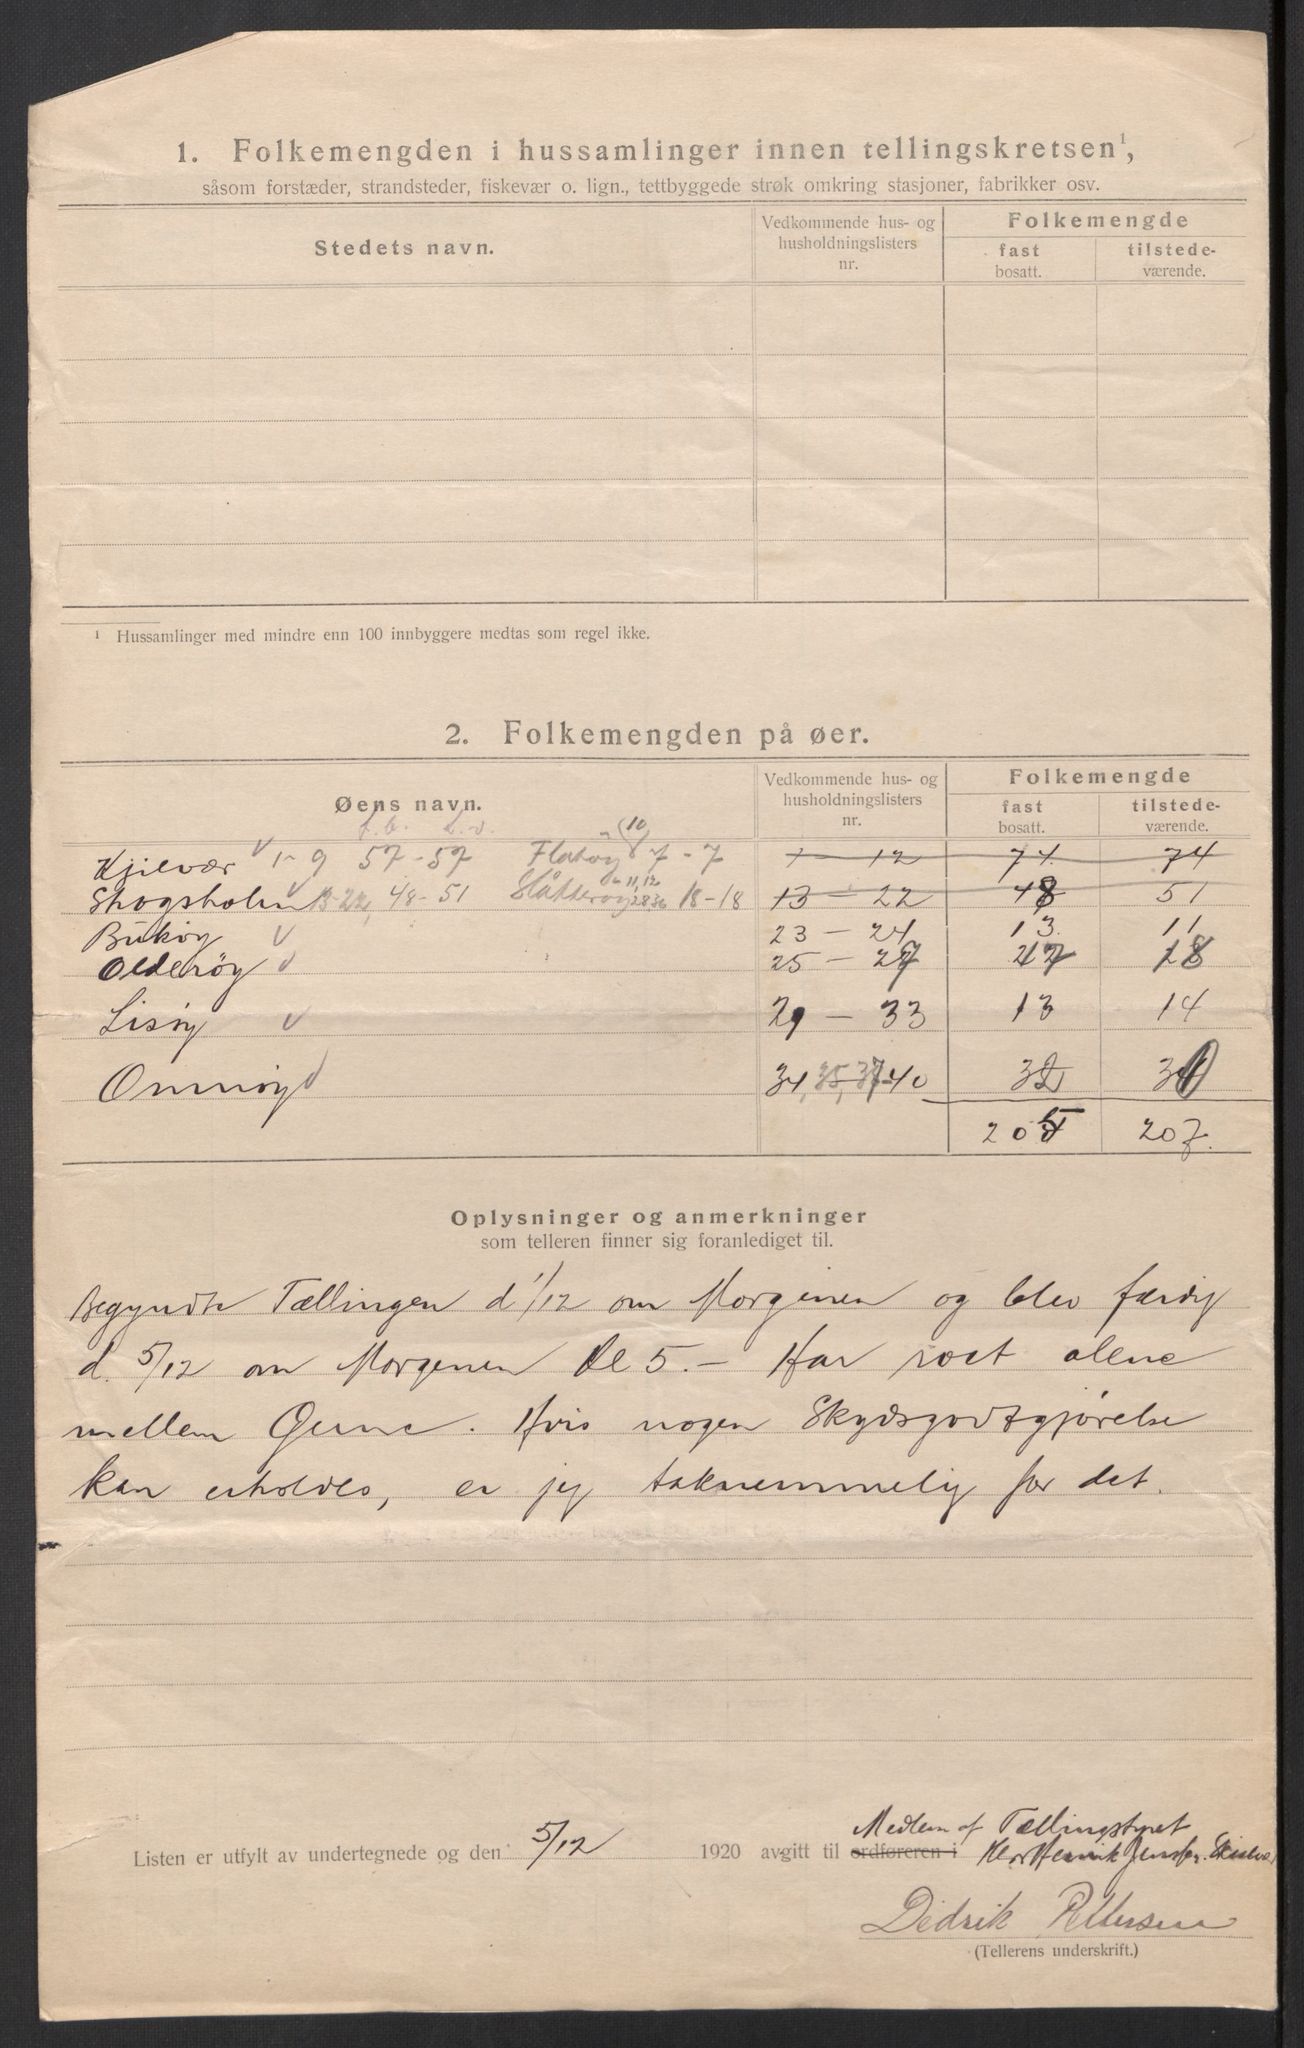 1. Folkemengden i hussamlinger innen tellingskretsen¹,
såsom forstæder, strandsteder, fiskevær o. lign., tettbyggede strøk omkring stasjoner, fabrikker osv.
Stedets navn.
Vedkommende hus- og husholdningslisters nr.
Folkemengde
fast bosatt.
tilstede-værende.
¹ Hussamlinger med mindre enn 100 innbyggere medtas som regel ikke.
2. Folkemengden på øer.
Øens navn.
Vedkommende hus- og husholdningslisters nr.
Folkemengde
fast bosatt.
tilstede-værende.
f.b. t.v. (10)
Kjilvær v 1-9 57-57 Flatøy 7-7 1-12 74 74
Skogsholm v 13-22, 48-51 Slåtterøy 11,12 28 36 18-18 13-22 48 51
Bukøy v 23-24 13 11
Olderøy v 25-27 18
Lisøy v 29-33 13 14
Omnøy v 34, 35, 37-40 32
205 207.
Oplysninger og anmerkninger
som telleren finner sig foranlediget til.
Begyndte Tællingen d 1/12 om Morgenen og blev færdig
d. 5/12 om Morgenen Kl 5. - Har roet alene
mellem Øerne. Hvis nogen Skydsgodtgjørelse
kan erholdes, er jeg taknemmelig for det.
Medlem af Tællingstyret
Listen er utfylt av undertegnede og den 5/12 1920 avgitt til ordføreren i Hr Henrik Jensen
Didrik Pettersen
(Tellerens underskrift.)